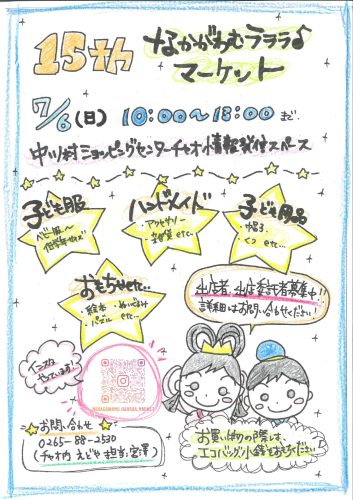 15th なかがわむラララ♪
マーケット
7/6(日) 10:00〜13:00まで
中川村ショッピングセンターチャオ 情報発信スペース
子ども服
ベビー服〜
ハンドメイド
アクセサリー
雑貨 etc...
子ども用品
帽子
くつ etc...
おもちゃ etc...
・絵本 ・ぬいぐるみ
・パズル etc...
出店者、出店委託者募集中!!
詳細はお問い合わせください
インスタ
やっています!
NAKAGAWAMU_RARARA_MARKET
お問い合わせ
0265-88-2530
(チャオ内 えどや 担当:宮澤)
お買い物の際は、
エコバッグ・小銭をお持ちください